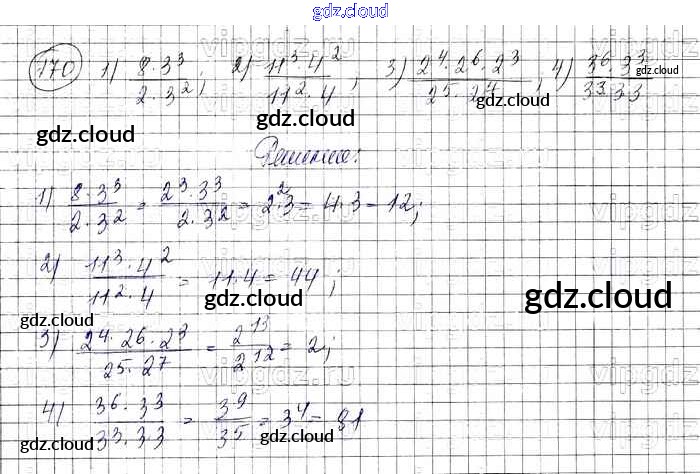 gdz.cloud
170 1) 8·3³/2·3²; 2) 11³·4²/11²·4; 3) 2⁴·2⁶·2³/2⁵·2⁴; 4) 3⁶·3³/3³·3³
gdz.cloud gdz.cloud gdz.cloud gdz.cloud
Решение:
1) 8·3³/2·3² = 2³·3³/2·3² = 2²·3 = 4·3 = 12;
2) 11³·4²/11²·4 = 11·4 = 44;
gdz.cloud gdz.cloud gdz.cloud
3) 2⁴·2⁶·2³/2⁵·2⁷ = 2¹³/2¹² = 2;
4) 3⁶·3³/3³·3³ = 3⁹/3⁵ = 3⁴ = 81
gdz.cloud gdz.cloud gdz.cloud